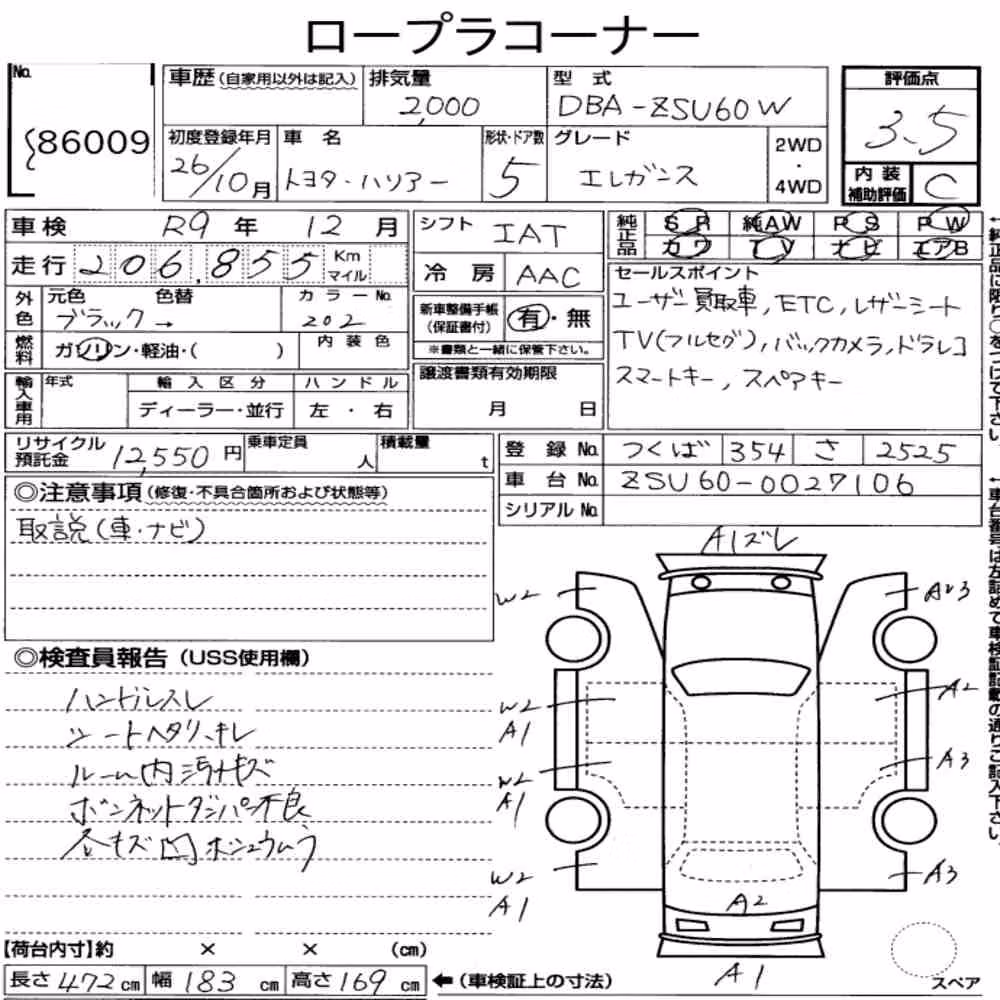 ロープラコーナー
No. 86009
車歴 (自家用以外は記入) 排気量 2,000 型式 DBA-ZSU60W
評価点 3.5
初度登録年月 26/10月 車名 トヨタ・ハリアー 形状・ドア数 5 グレード エレガンス 2WD・4WD
内装補助評価 C
車検 R9年 12月 シフト IAT
純正品 SR 純AW PS PW
カワ TV ナビ エアB
走行 206,855 Km マイル 冷房 AAC
外色 元色 ブラック→ 色替 カラーNo. 202
内装色
新車整備手帳(保証書付) 有・無
※書類と一緒に保管下さい。
燃料 ガソリン・軽油・( )
セールスポイント
ユーザー買取車, ETC, レザーシート
TV(フルセグ), バックカメラ, ドラレコ
スマートキー, スペアキー
輸入車用 年式 輸入区分 ディーラー・並行 ハンドル 左・右
譲渡書類有効期限 月 日
リサイクル預託金 12,550円 乗車定員 人 積載量 t
登録No. つくば 354 さ 2525
車台No. ZSU60-0027106
シリアルNo.
◎注意事項 (修復・不具合箇所および状態等)
取説(車・ナビ)
◎検査員報告 (USS使用欄)
ハンドルスレ
シートヘタリ、キレ
ルーム内汚れキズ
ボンネットダンパー不良
各キズ凹ホシュウムラ
A1ズレ
W2
W2
A1
W2
A1
W2
A1
A2
A3
A3
A2
A1
スペア
【荷台内寸】約 × × (cm)
長さ 472cm 幅 183cm 高さ 169cm
←(車検証上の寸法)
↑純正品に限り○をつけて下さい。